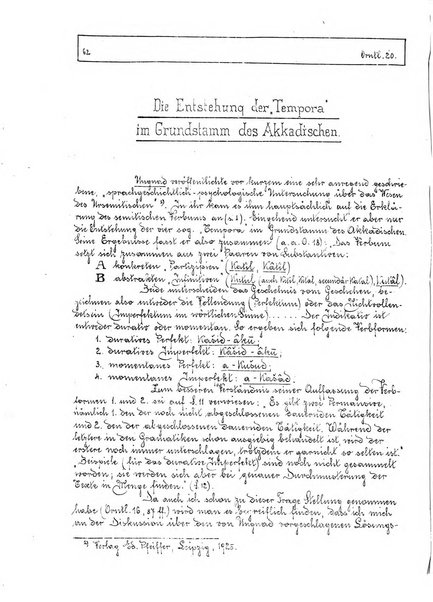 62 Orntl. 20.
Die Entstehung der „Tempora"
im Grundstamm des Akkadischen.
Ungnad veröffentlichte vor kurzem eine sehr anregend geschrie-
bene, „sprachgeschichtlich-psychologische Untersuchung über das Wesen
des Ursemitischen" ¹⁾. In ihr kam es ihm hauptsächlich auf die Erklä-
rung des semitischen Verbums an (s. 1). Eingehend untersucht er aber nur
die Entstehung der vier sog. „Tempora" im Grundstamm des Akkadischen.
Seine Ergebnisse fasst er also zusammen (a. a. O. 18): „Das Verbum
setzt sich zusammen aus zwei Paaren von Substantiven:
A konkreten „Partizipien" (Katil, Kâtil)
B abstrakten „Infinitiven" (Kutul (auch Kitil, Katal, secundär Katul), Katâl).
Beide unterscheiden das Geschehnis vom Geschehen, be-
zeichnen also entweder die Vollendung (Perfektum) oder das Nichtvollen-
detsein (Imperfektum im wörtlichen Sinne) . . . . . . Der Indikativ ist
entweder durativ oder momentan. So ergeben sich folgende Verbformen:
1. duratives Perfekt: Kašid-âku;
2. duratives Imperfekt: Kâšid-âku;
3. momentanes Perfekt: a-Kušud;
4. momentanes Imperfekt: a-Kašâd."
Zum besseren Verständnis seiner Auffassung der Verb-
formen 1. und 2. sei auf § 11 verwiesen: „Es gibt zwei Permansive,
nämlich 1. den der noch nicht abgeschlossenen dauernden Tätigkeit
und 2. den der abgeschlossenen dauernden Tätigkeit. Während der
letztere in den Grammatiken schon ausgiebig behandelt ist, wird der
erstere noch immer unterschlagen, trotzdem er garnicht so selten ist."
„Beispiele (für das durative Imperfekt) sind noch nicht gesammelt
worden; sie werden sich aber bei genauer Durchmusterung der
Texte in Menge finden." (§ 12).
Da auch ich schon zu dieser Frage Stellung genommen
habe (Orntl. 16, 37 ff) wird man es begreiflich finden, dass ich mich
an der Diskussion über den von Ungnad vorgeschlagenen Lösungs-
¹⁾ Verlag Ed. Pfeiffer, Leipzig, 1925.